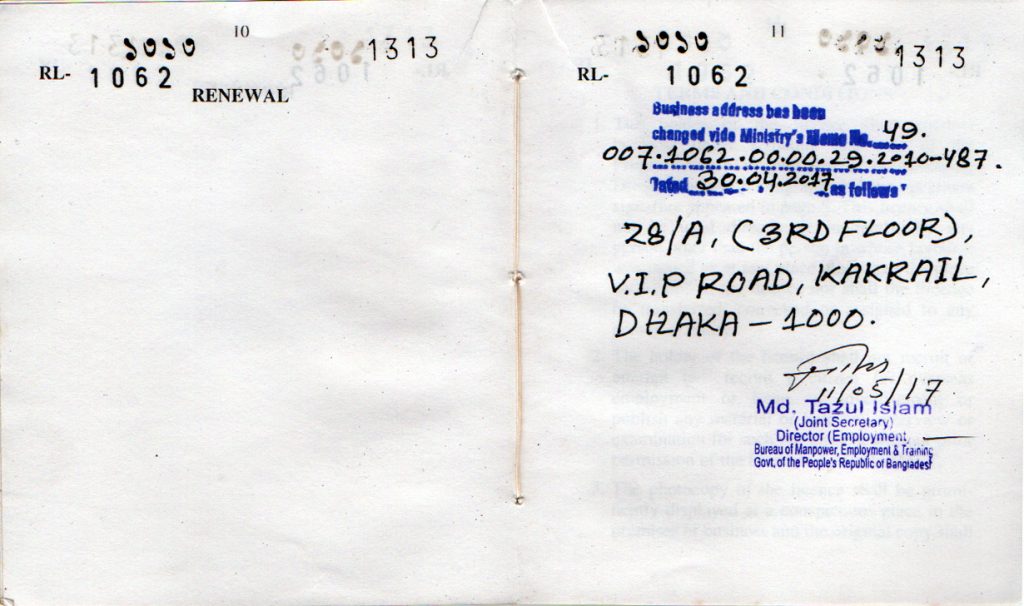 10
১৩১৩ 1313
RL- 1062
RENEWAL
11
১৩১৩ 1313
RL- 1062
Business address has been
changed vide Ministry's Memo No. 49.
007.1062.00.00.29.2010-487.
Dated 30.04.2017 as follows
28/A, (3RD FLOOR),
V.I.P ROAD, KAKRAIL,
DHAKA - 1000.
11/05/17
Md. Tazul Islam
(Joint Secretary)
Director (Employment
Bureau of Manpower, Employment & Training
Govt, of the People's Republic of Bangladesh